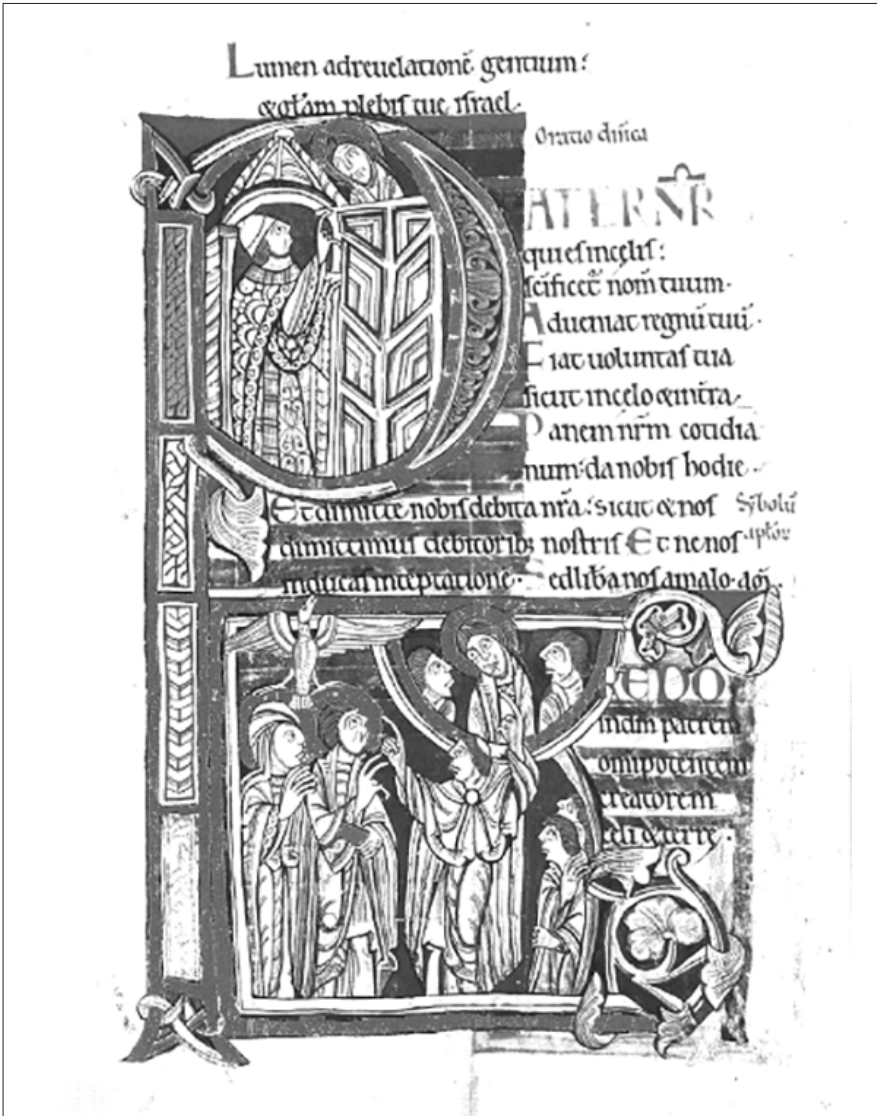 Lumen adreuelationē gentium:
&glam plebis tue israel.
Oratio dn̄ica
PATER NR̄
qui es in celis:
Adueniat regnū tuū.
Fiat uoluntas tua
sicut in celo & in tr̄a.
Panem nr̄m cotidia
num: da nobis hodie.
Et dimitte nobis debita nr̄a: sicut & nos
Sȳbolū
dimittimus debitorib; nostris Et ne nos
aplō4
inducas intēptatione. Sed lib̄a nos a malo. am̄.
CREDO
in dm̄ patrem
omipotentem
creatorem
celi & terre.